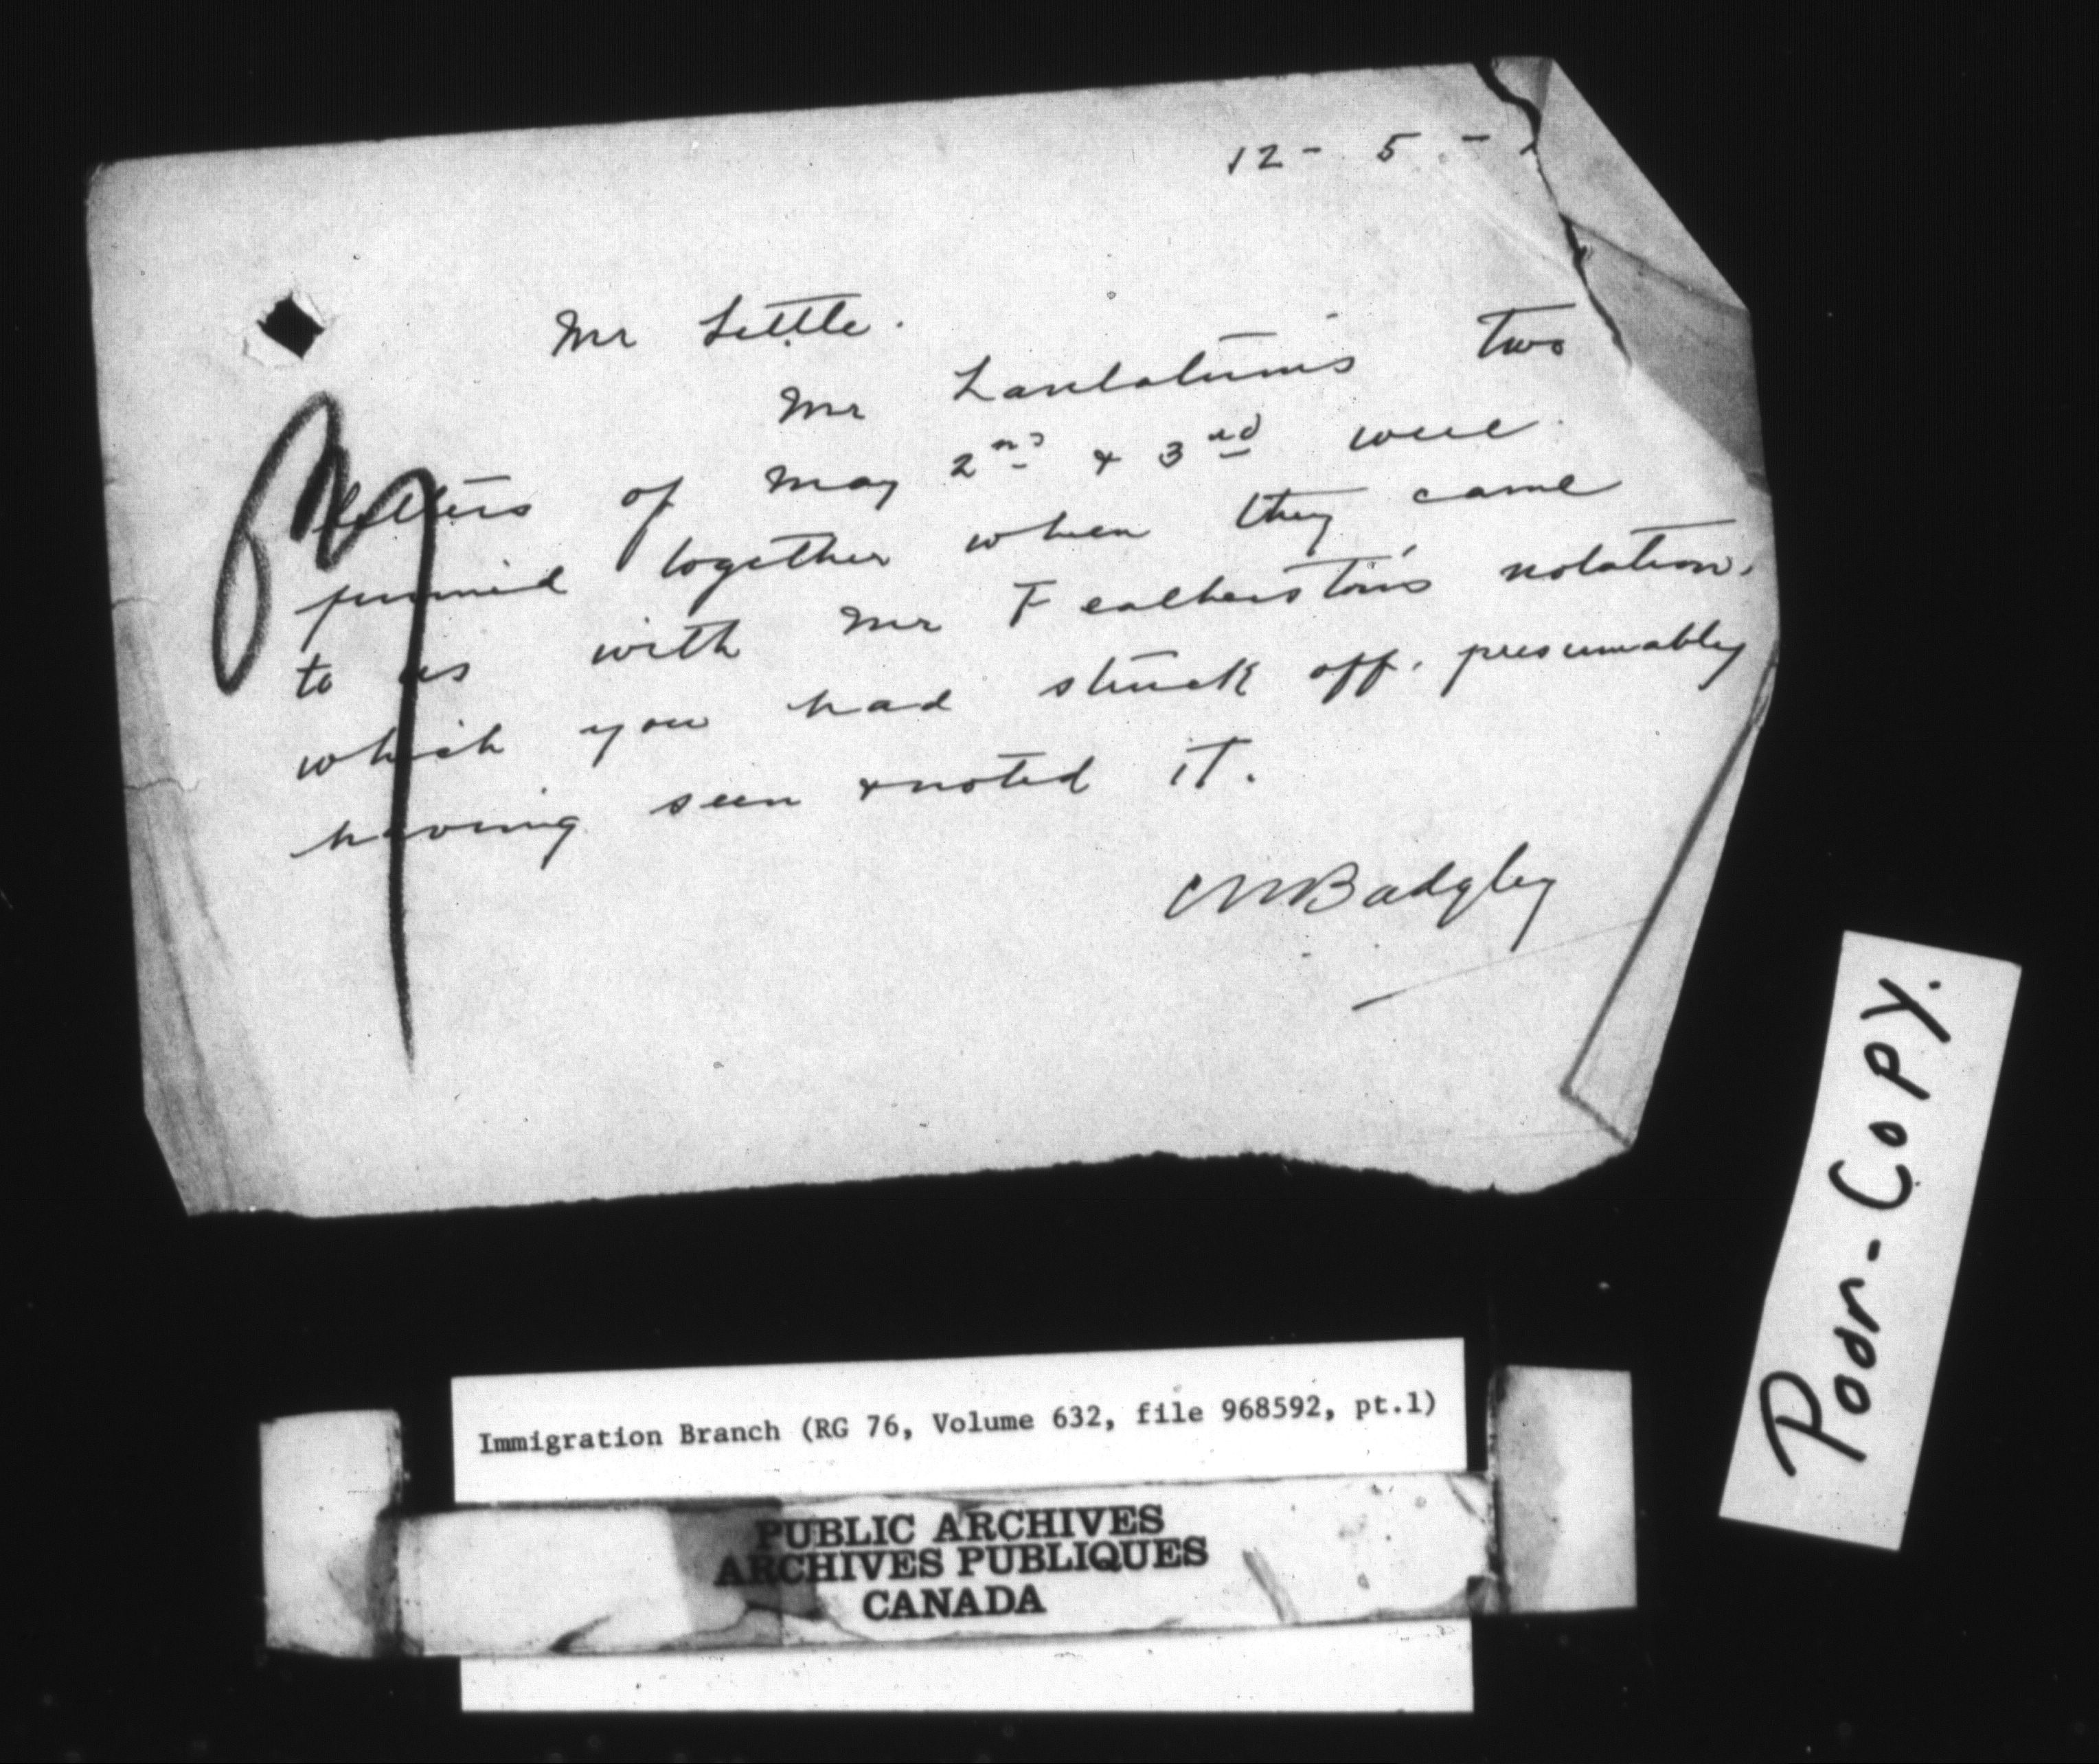 12 - 5 -
Mr Little.
Mr Lantalum's two
letters of May 2nd & 3rd were
pinned together when they came
to us with Mr Featherston's notation,
which you had struck off, presumably
having seen & noted it.
CMBadgley
Poor-Copy.
Immigration Branch (RG 76, Volume 632, file 968592, pt.1)
PUBLIC ARCHIVES
ARCHIVES PUBLIQUES
CANADA